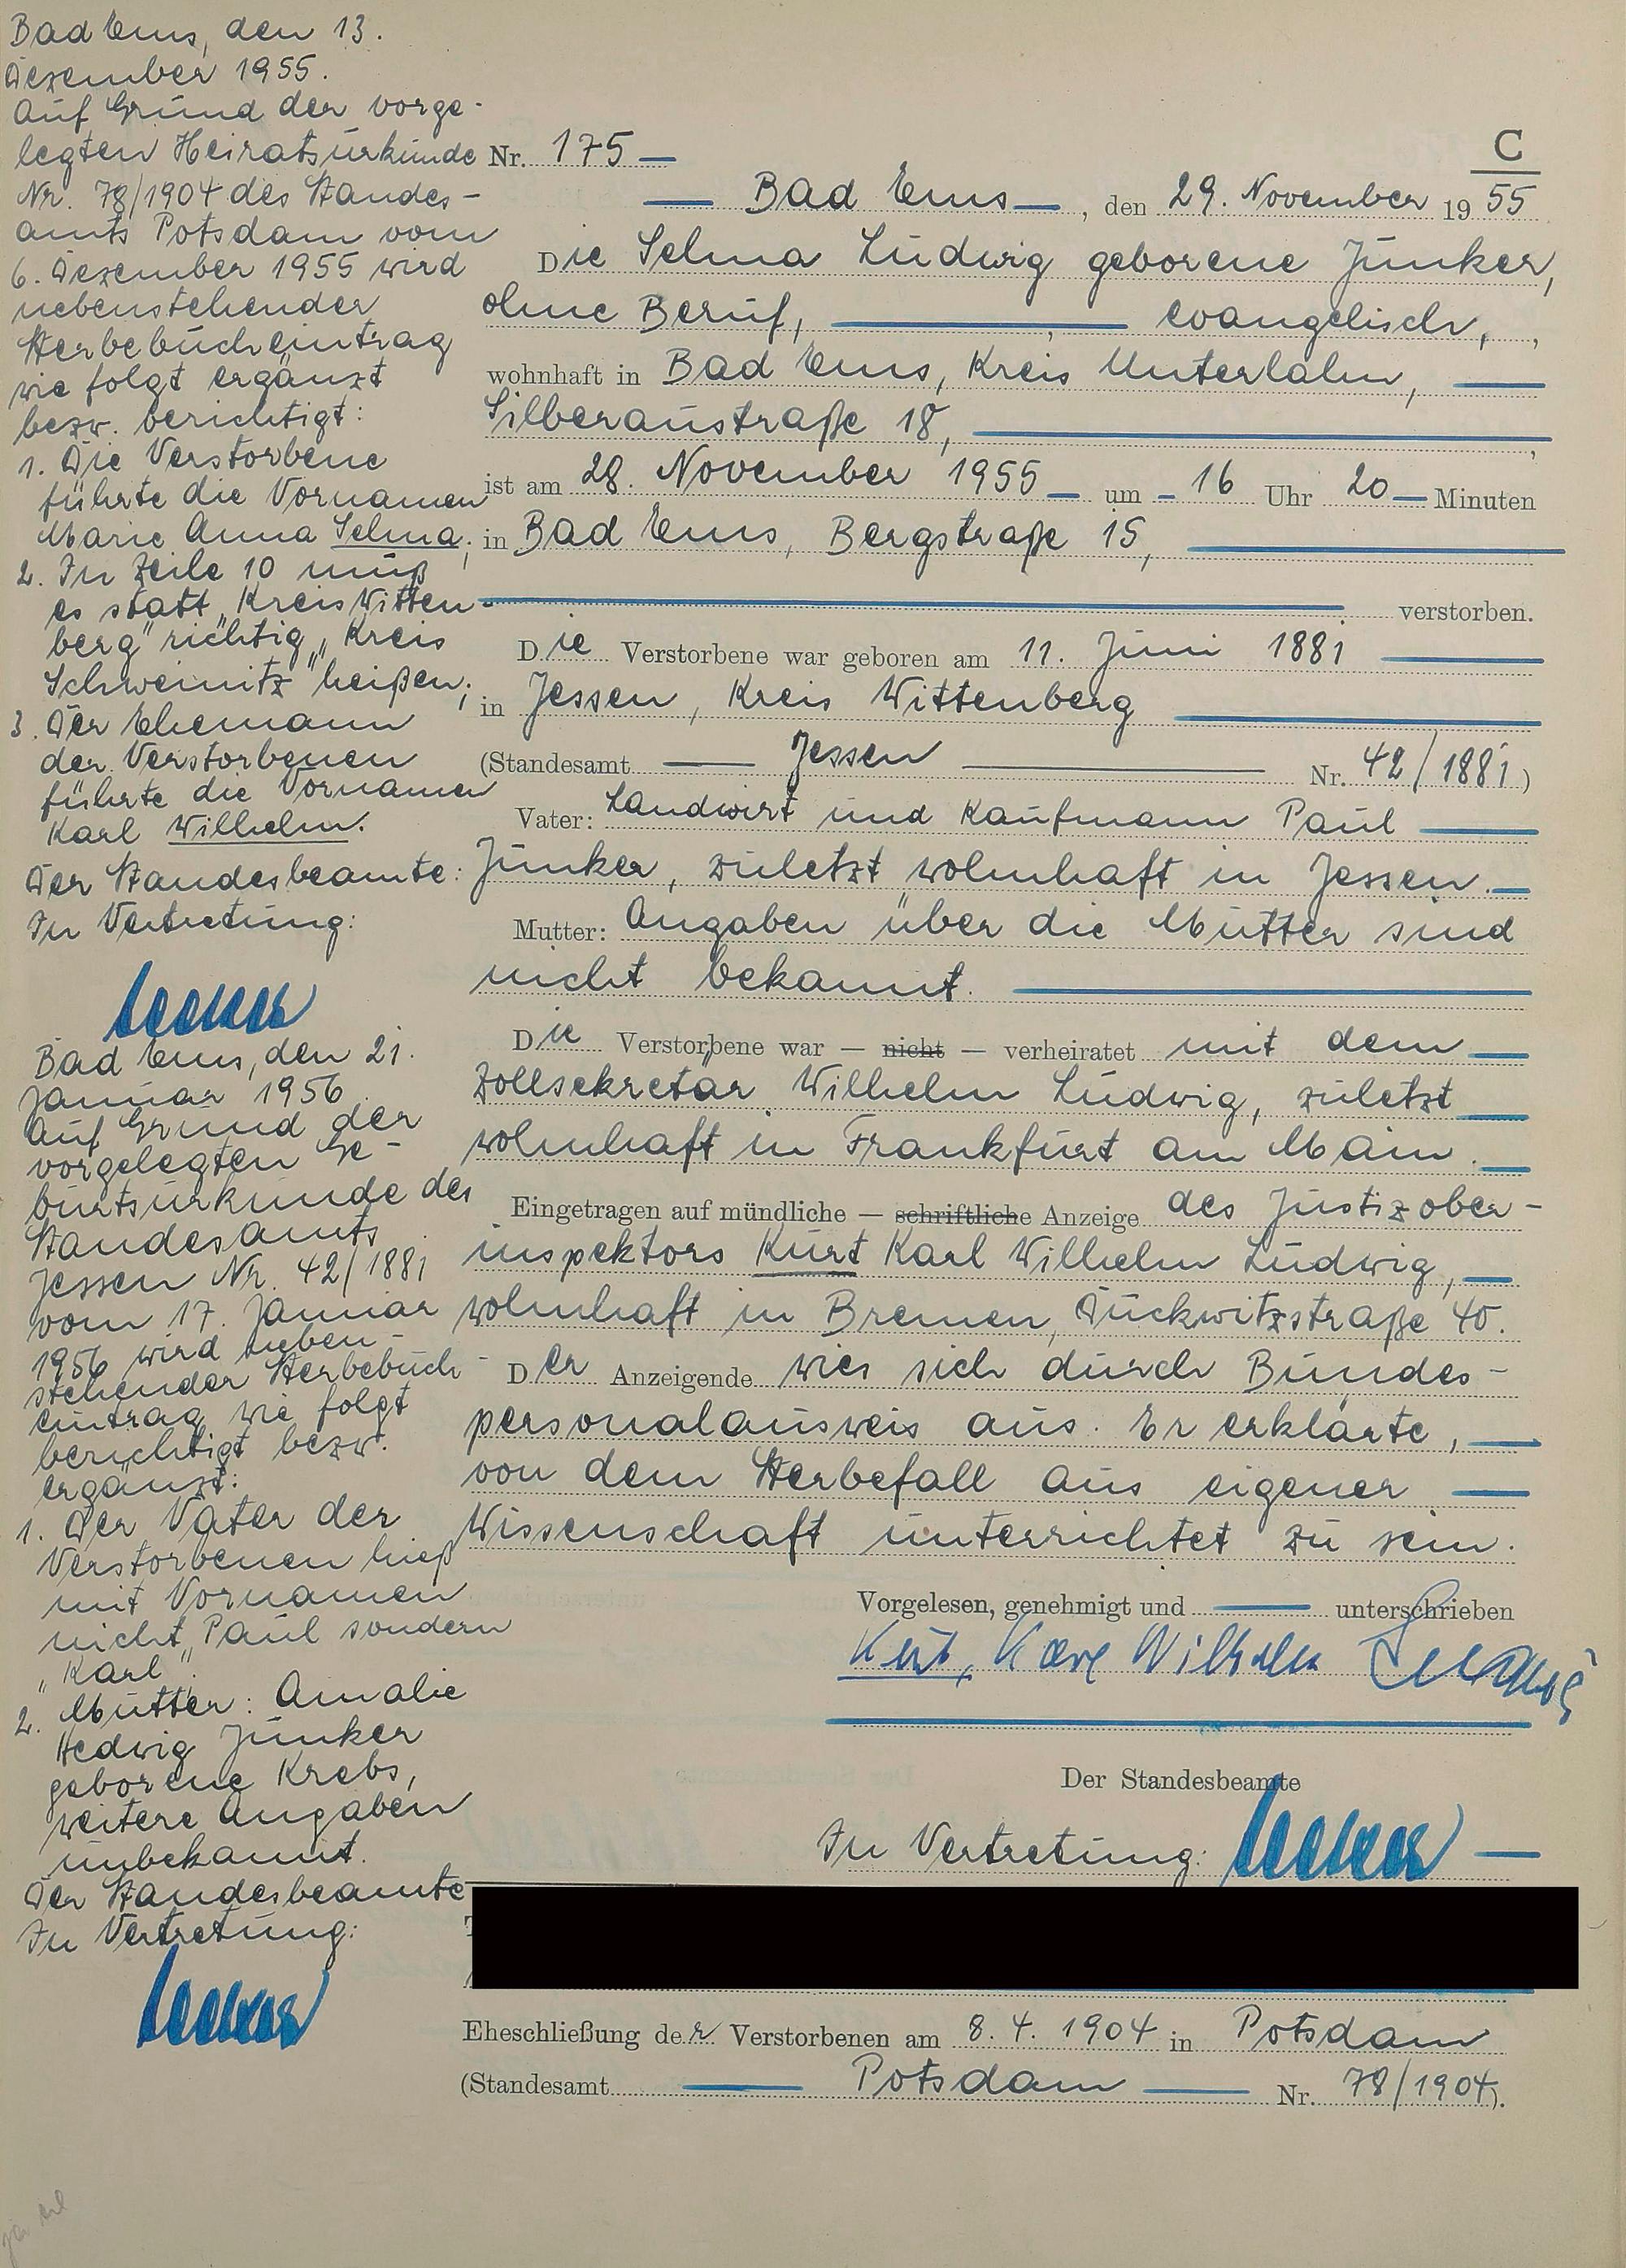 Bad Ems, den 13.
Dezember 1955.
Auf Grund der vorge-
legten Heiratsurkunde
Nr. 78/1904 des Standes-
amts Potsdam vom
6. Dezember 1955 wird
nebenstehender
Sterbebucheintrag
wie folgt ergänzt
bezw. berichtigt:
1. Die Verstorbene
führte die Vornamen
Marie Anna Selma;
2. In Zeile 10 muß
es statt „Kreis Witten-
berg" richtig „Kreis
Schweinitz" heißen;
3. Der Ehemann
der Verstorbenen
führte die Vornamen
Karl Wilhelm.
Der Standesbeamte:
In Vertretung:
Bad Ems, den 21.
Januar 1956
Auf Grund der
vorgelegten Ge-
burtsurkunde des
Standesamts
Jessen Nr. 42/1881
vom 17. Januar
1956 wird neben-
stehender Sterbebuch-
eintrag wie folgt
berichtigt bezw.
ergänzt:
1. Der Vater der
Verstorbenen hieß
mit Vornamen
nicht „Paul sondern
„Karl".
2. Mutter: Amalie
Hedwig Junker
geborene Krebs,
weitere Angaben
unbekannt.
Der Standesbeamte
In Vertretung:
C
Nr. 175
Bad Ems, den 29. November 1955
Die Selma Ludwig geborene Junker,
ohne Beruf, evangelisch,
wohnhaft in Bad Ems, Kreis Unterlahn,
Silberaustraße 18,
ist am 28. November 1955 um 16 Uhr 20 Minuten
in Bad Ems, Bergstraße 15,
verstorben.
Die Verstorbene war geboren am 11. Juni 1881
in Jessen, Kreis Wittenberg
(Standesamt Jessen Nr. 42/1881)
Vater: Landwirt und Kaufmann Paul
Junker, zuletzt wohnhaft in Jessen.
Mutter: Angaben über die Mutter sind
nicht bekannt.
Die Verstorbene war — nicht — verheiratet mit dem
Zollsekretär Wilhelm Ludwig, zuletzt
wohnhaft in Frankfurt am Main.
Eingetragen auf mündliche — schriftliche Anzeige des Justizober-
inspektors Kurt Karl Wilhelm Ludwig,
wohnhaft in Bremen, Duckwitzstraße 40.
Der Anzeigende wies sich durch Bundes-
personalausweis aus. Er erklärte,
von dem Sterbefall aus eigener
Wissenschaft unterrichtet zu sein.
Vorgelesen, genehmigt und unterschrieben
Kurt, Karl Wilhelm Ludwig
Der Standesbeamte
In Vertretung:
Eheschließung der Verstorbenen am 8. 4. 1904 in Potsdam
(Standesamt Potsdam Nr. 78/1904).